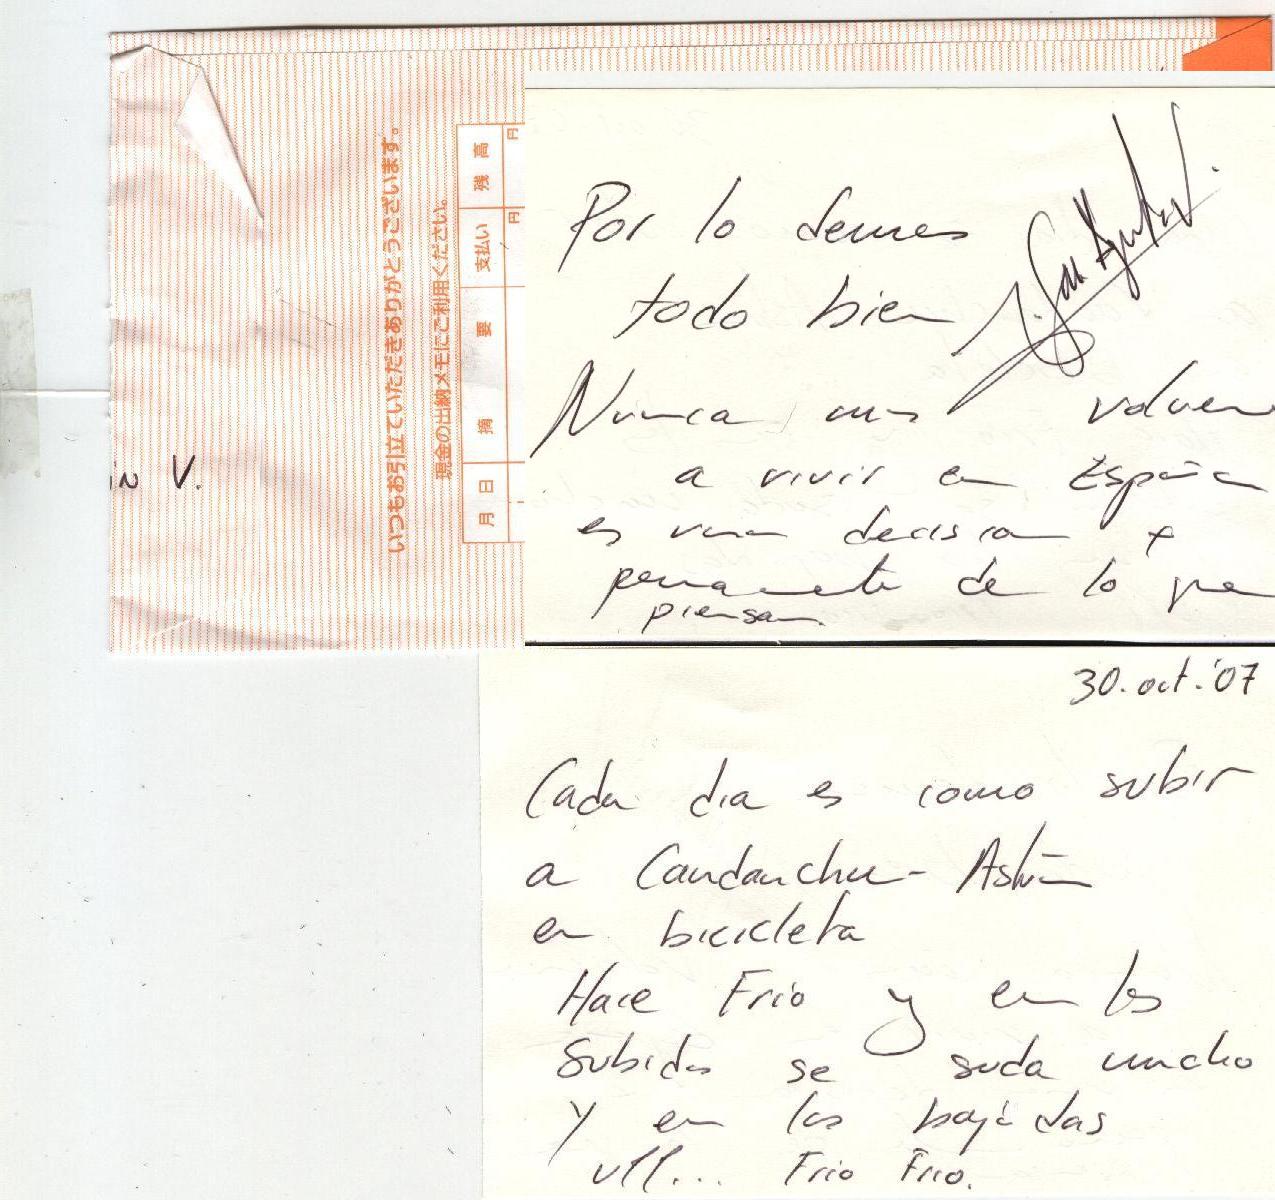 いつもお引立ていただきありがとうございます。
現金の出納メモにご利用ください。
月 日
摘 要
支払い 円
残 高 円
V.
Por lo demas
todo bien
Nunca mas volver
a vivir en España
es una decision +
permanente de lo que
piensan.
30.oct.'07
Cada dia es como subir
a Candanchu-Astún
en bicicleta
Hace Frio y en las
Subidas se suda mucho
y en las bajadas
uff... Frio Frio.